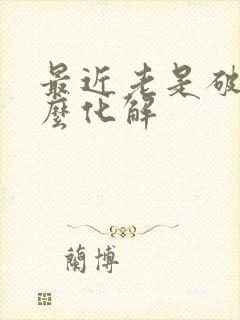 最近老是破
麼化解
蘭博